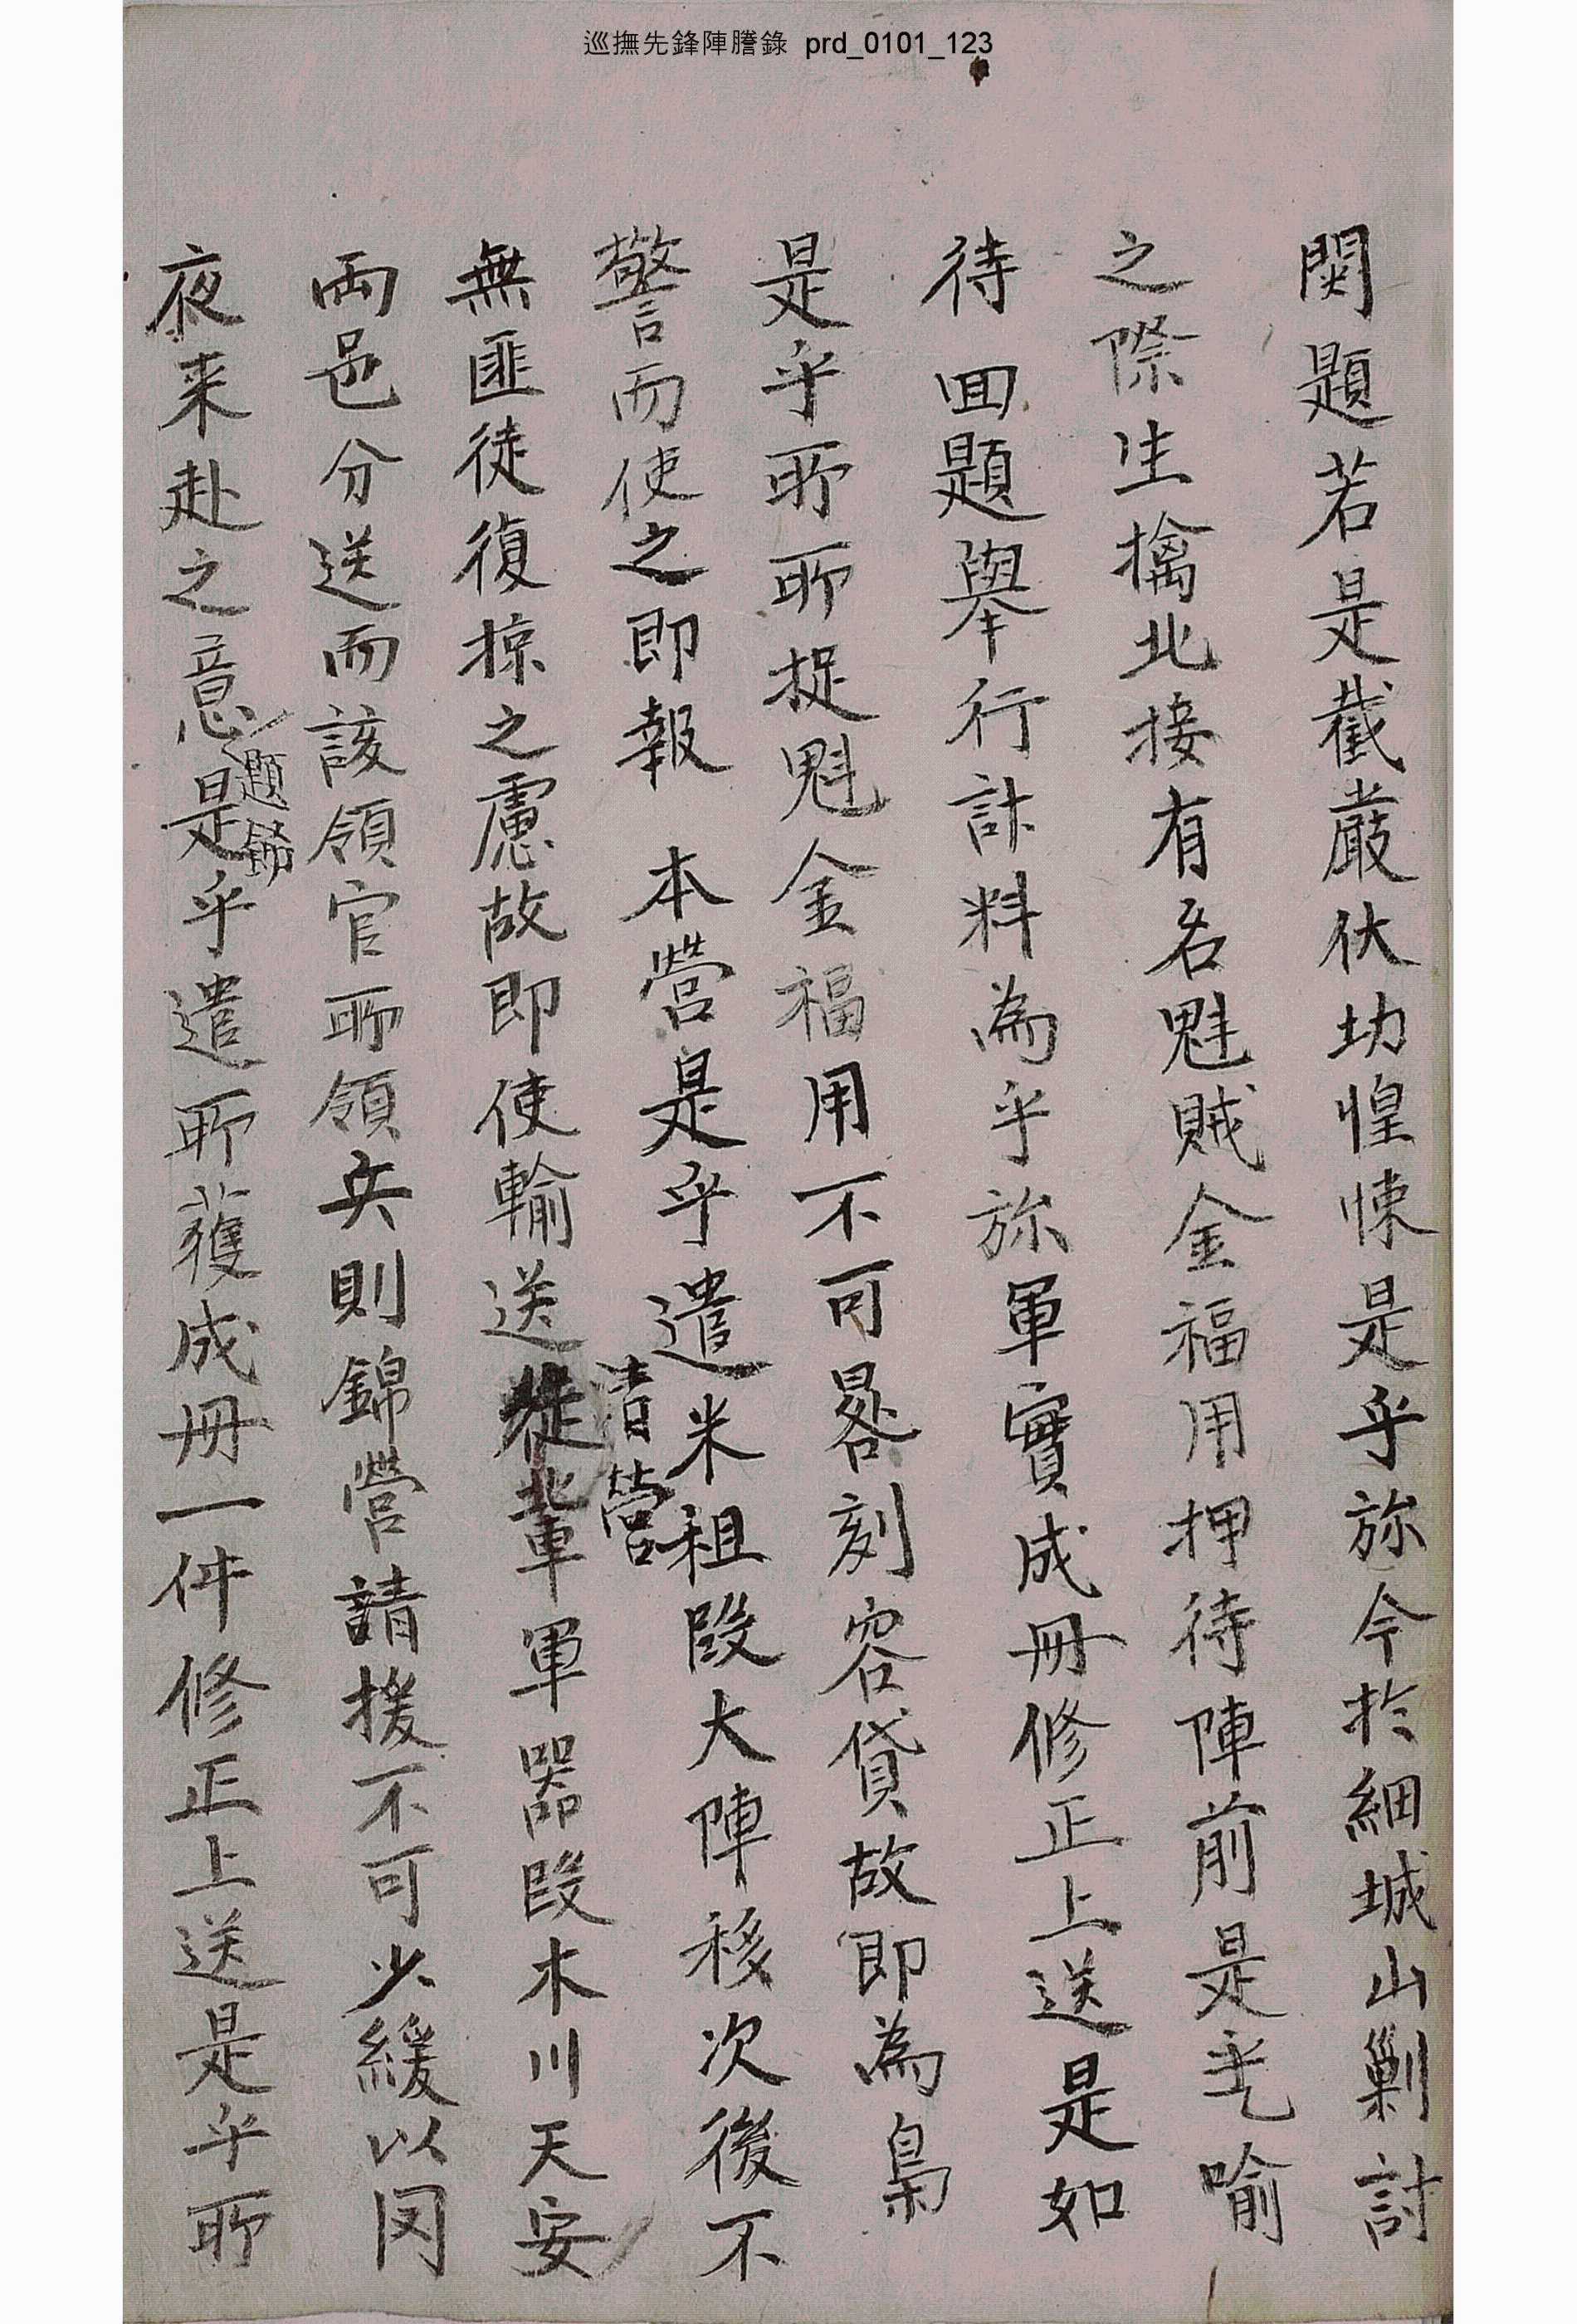 巡撫先鋒陣謄錄 prd_0101_123
関題若是截嚴伏功惶悚是乎旀今於細城山剿討
之際生擒北接有名魁賊金福用押待陣前是乎喩
待 回題擧行計料爲乎旀軍實成冊修正上送是如
是乎所所捉魁金福用不可晷刻容貸故卽爲梟
警而使之卽報 本營是乎遣米租段大陣移次後不
無匪徒復掠之慮故卽使輸送淸營輦軍器段木川天安
兩邑分送而該領官所領兵則錦營請援不可少緩以罔
夜來赴之意題歸是乎遣所獲成冊一件修正上送是乎所